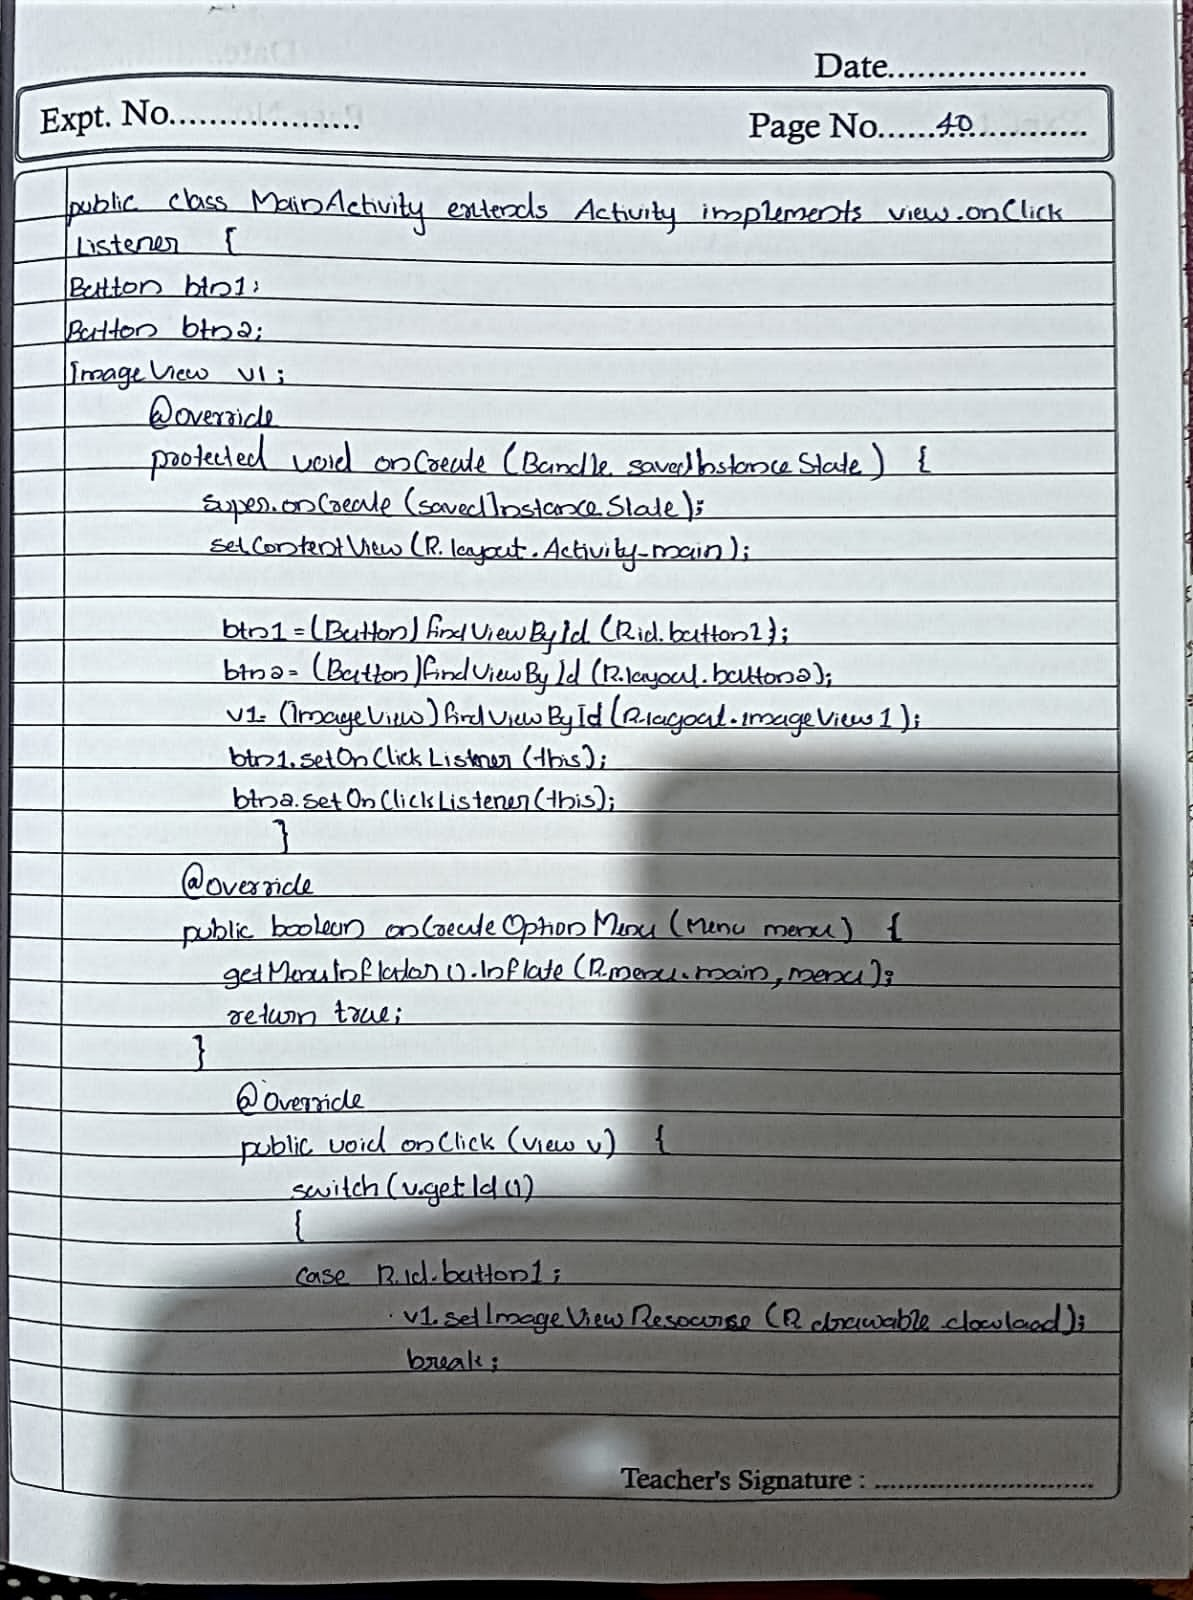 Date.....................
Expt. No...................
Page No......40............
public class MainActivity extends Activity implements view.onClick
Listener {
Button btn1;
Button btn2;
ImageView v1;
@override
protected void onCreate (Bundle savedInstanceState) {
super.onCreate (savedInstanceState);
setContentView (R.layout.Activity-main);
btn1 = (Button) findViewById (R.id.button1);
btn2 = (Button) findViewById (R.layout.button2);
v1 = (ImageView) findViewById (R.layout.imageView1);
btn1.setOnClickListener (this);
btn2.setOnClickListener (this);
}
@override
public boolean onCreateOptionMenu (Menu menu) {
getMenuInflator ().inflate (R.menu.main, menu);
return true;
}
@override
public void onClick (view v) {
switch (v.getId ()
{
case R.id.button1;
v1.setImageViewResourse (R drawable
break;
Teacher's Signature : ..............................